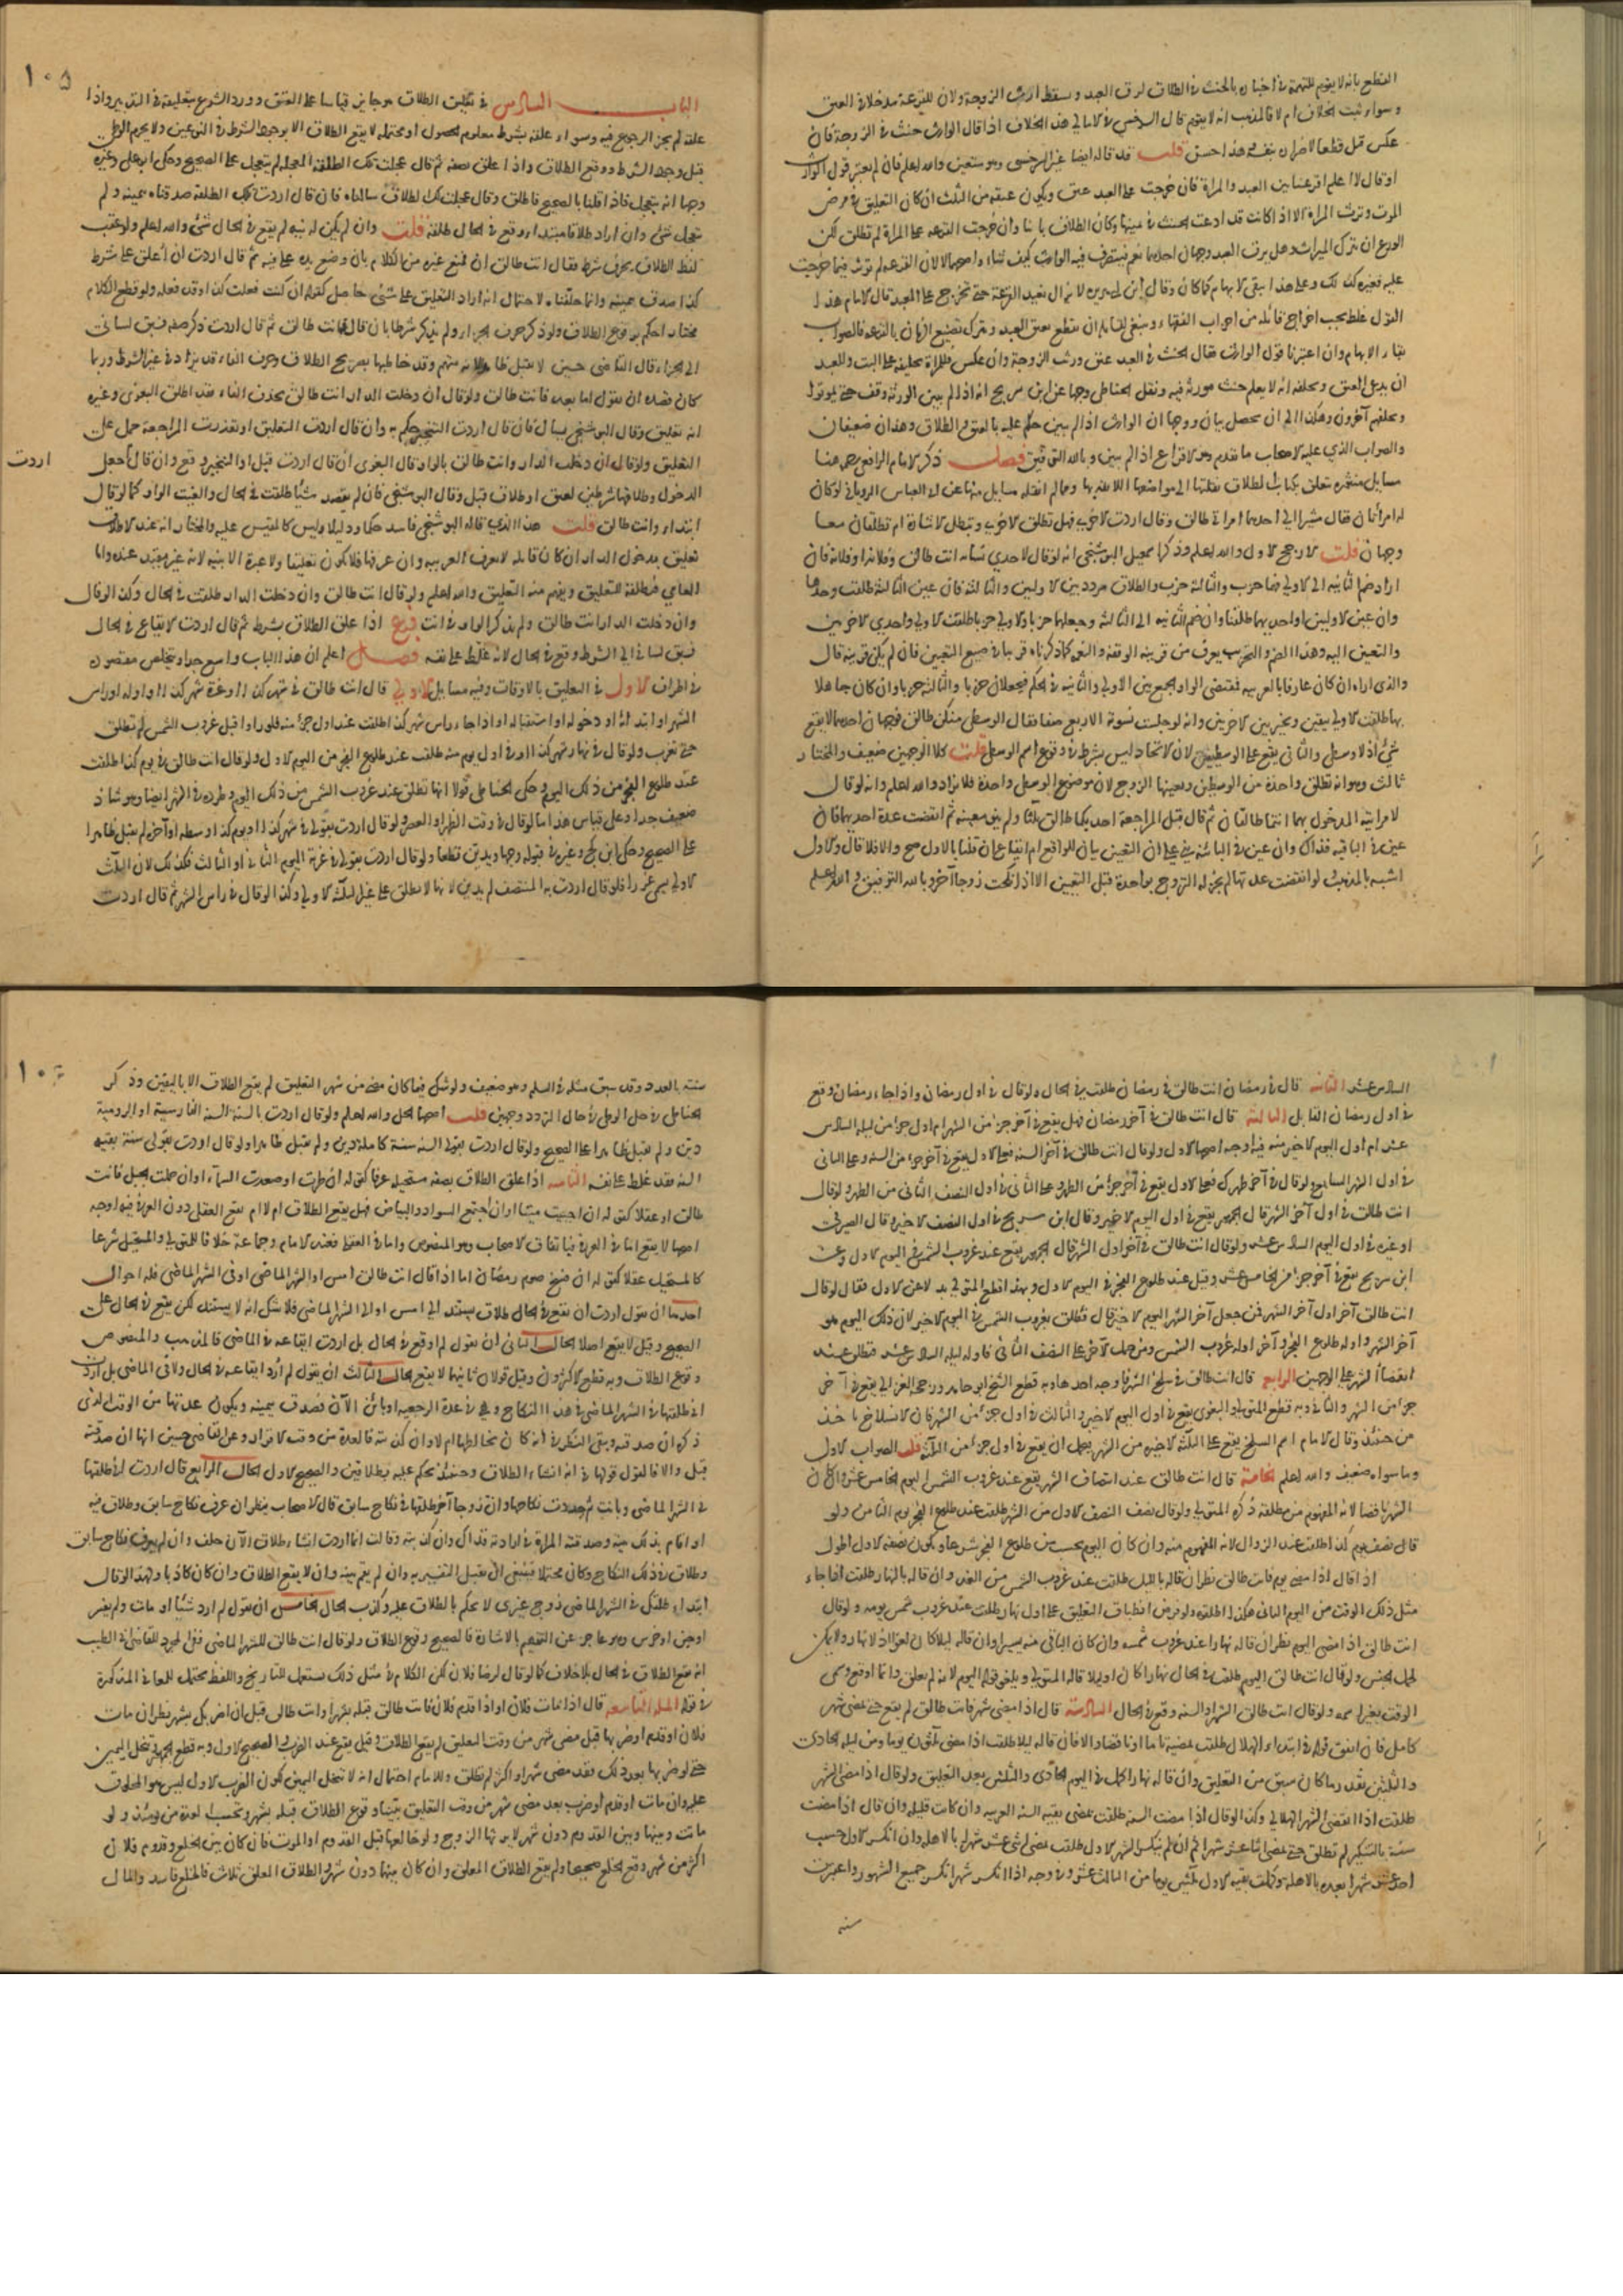 القطع بانه لا يقوم للتهمة في اخباره بالحنث في الطلاق ليرق العبد ويسقط ارث الزوجة ولان للقرعة مدخلا في العتق
وسواء ثبت الخلاف ام لا فالمذهب انه لا يقوم قال السرخسي في الامالي هذا الخلاف اذا قال الوارث حنث في الزوجة فان
عكس قبل قطعا لاضراره بنفسه هذا حسن قلت قد قاله ايضا غير السرخسي وهو متعين والله اعلم فان لم يعتبر قول الوارث
او قال لا اعلم اقرعنا بين العبد والمراة فان خرجت على العبد عتق ويكون عتقه من الثلث ان كان التعليق في مرض
الموت وترث المراة الا اذا كانت قد ادعت الحنث في يمينه وكان الطلاق بائنا وان خرجت القرعة على المراة لم تطلق لكن
الورع ان تترك الميراث وهل يرق العبد وجهان احدهما نعم فيتصرف فيه الوارث كيف شاء واصحهما لا لان القرعة لم تؤثر فيما خرجت
عليه فغيره كذلك وعلى هذا يبقى الابهام كما كان وقال ابن ابي هريرة لا يزال نعيد القرعة حتى تخرج على العبد قال الامام هذا
القول غلط يجب اخراج قائله من احزاب الفقهاء وينبغي لقائله ان يقطع بعتق العبد ويترك تضييع الزمان بالقرعة فالصواب
بقاء الابهام وان اعتبرنا قول الوارث فقال الحنث في العبد عتق وورثت الزوجة وان عكس فللمراة تحليفه على البت وللعبد
ان يدعي العتق ويحلفه انه لا يعلم حنث مورثه فيه ونقل الحناطي وجها عن ابن سريج انه اذا لم يبين الورثة وقف حتى يموتوا
ويخلفهم آخرون وهكذا الى ان يحصل بيان ووجها ان الوارث اذا لم يبين حكم عليه بالعتق والطلاق وهذان ضعيفان
والصواب الذي عليه الاصحاب ما تقدم وهو الاقراع اذا لم يبين وبالله التوفيق فصل ذكر الامام الرافعي رحمه هنا
مسايل منثورة تتعلق بكتاب الطلاق نقلتها الى مواضعها اللائقة بها ومما لم انقله مسايل منها عن ابي العباس الروياني لو كان
له امراتان فقال مشيرا الى احديهما امراتي طالق وقال اردت الاخرى فهل تطلق الاخرى وتبطل الاشارة ام تطلقان معا
وجهان قلت الارجح الاول والله اعلم وذكر اسمعيل البوشنجي انه لو قال لاحدى نسائه انت طالق وفلانة او فلانة فان
اراد ضم الثانية الى الاولى فهما حزب والثالثة حزب والطلاق مردد بين الاوليين والثالثة فان عين الثالثة طلقت وحدها
وان عين الاوليين او احديهما طلقتا وان ضم الثانية الى الثالثة وجعلهما حزبا والاولى حزبا طلقت الاولى واحدى الاخريين
والتعيين اليه وهذا الضم والتحزيب يعرف من قرينة الوقفة والنغمة كما ذكرناه قريبا في صيغ التعيين فان لم يكن قرينة قال
والذي اراه ان كان عارفا بالعربية فمقتضى الواو الجمع بين الاولى والثانية في الحكم فيجعلان حزبا والثالثة حزبا وان كان جاهلا
بها طلقت الاولى بيقين ويخير بين الاخريين وانه لو جلست نسوة الاربع صفا فقال الوسطى منكن طالق فوجهان احدهما لا يقع
شيء اذ لا وسطى والثاني يقع على الوسطيين لان الاتحاد ليس بشرط في وقوع اسم الوسطى قلت كلا الوجهين ضعيف والمختار
ثالث وهو انه تطلق واحدة من الوسطيين ويعينها الزوج لان موضوع الوسطى واحدة فلا يزاد والله اعلم وانه لو قال
لامراتيه المدخول بهما انتما طالقان ثم قال قبل المراجعة احديكما طالق ثلثا ولم ينو معينة ثم انقضت عدة احديهما فان
عين في الباقية فذاك وان عين في البائنة بني على ان التعيين بيان للواقع ام ايقاع ان قلنا بالاول صح والا فلا قال والاول
اشبه بالمذهب ولو انقضت عدتهما لم يجز له التزوج بواحدة قبل التعيين الا اذا نكحت زوجا آخر وبالله التوفيق والله اعلم
١٠٥
الباب السادس في تعليق الطلاق هو جايز قياسا على العتق وورد الشرع بتعليقه في التدبير واذا
علقه لم يجز الرجوع فيه وسواء علقه بشرط معلوم الحصول او محتمله لا يقع الطلاق الا بوجود الشرط في النوعين ولا يحرم الوطي
قبل وجود الشرط ووقوع الطلاق واذا علق بصفة ثم قال عجلت تلك الطلقة المعجلة لم يتعجل على الصحيح وحكى ابو علي وغيره
وجها انه يتعجل فاذا قلنا بالصحيح فاطلق وقال عجلت لك الطلاق سالناه فان قال اردت تلك الطلقة صدقناه بيمينه ولم
يتعجل شيء وان اراد طلاقا مبتداء وقع في الحال طلقة قلت وان لم يكن له نية لم يقع في الحال شيء والله اعلم ولو عقب
لفظ الطلاق بحرف شرط فقال انت طالق ان فمنعه غيره من الكلام بان وضع يده على فيه ثم قال اردت ان اعلق على شرط
كذا صدق بيمينه وانما حلفناه لاحتمال انه اراد التعليق على شيء حاصل كقوله ان كنت فعلت كذا وقد فعله ولو قطع الكلام
مختارا حكم بوقوع الطلاق ولو ذكر حرف الجزاء ولم يذكر شرطا بان قال فانت طالق ثم قال اردت ذكر صفة فسبق لساني
الى الجزاء قال القاضي حسين لا يقبل ظاهرا لانه متهم وقد خاطبها بصريح الطلاق وحرف الفاء قد يزاد في غير الشرط وربما
كان قصده ان يقول اما بعد فانت طالق ولو قال ان دخلت الدار انت طالق بحذف الفاء فقد اطلق البغوي وغيره
انه تعليق وقال البوشنجي يسال فان قال اردت التنجيز حكم به وان قال اردت التعليق او تعذرت المراجعة حمل على
التعليق ولو قال ان دخلت الدار وانت طالق بالواو قال البغوي ان قال اردت قبل او التنجيز وقع وان قال اجعل
اردت
الدخول وطلاقها شرطين لعتق او طلاق قبل وقال البوشنجي فان لم يقصد شيئا طلقت في الحال والغيت الواو كما لو قال
ابتداء وانت طالق قلت هذا الذي قاله البوشنجي فاسد حكما ودليلا وليس كالمقيس عليه والمختار انه عند الاطلاق
تعليق بدخول الدار ان كان قايله لا يعرف العربية وان عرفها فلا يكون تعليقا ولا غيره الا بنية لانه غير مفيد عنده واما
العامي فيطلقه للتعليق ويفهم منه التعليق والله اعلم ولو قال انت طالق وان دخلت الدار طلقت في الحال وكذا لو قال
وان دخلت الدار انت طالق ولم يذكر الواو في انت فرع اذا علق الطلاق بشرط ثم قال اردت الايقاع في الحال
فسبق لساني الى الشرط وقع في الحال لانه غلظ على نفسه فصل اعلم ان هذا الباب واسع جدا ويتلخص مقصوده
في اطراف الاول في التعليق بالاوقات وفيه مسايل الاولى قال انت طالق في شهر كذا او غرة شهر كذا او اوله او راس
الشهر او ابتدائه او دخوله او استقباله او اذا جاء راس شهر كذا طلقت عند اول جزء منه فلو راوا قبل غروب الشمس لم تطلق
حتى تغرب ولو قال في نهار شهر كذا او في اول يوم منه طلقت عند طلوع الفجر من اليوم الاول ولو قال انت طالق في يوم كذا طلقت
عند طلوع الفجر من ذلك اليوم وحكى الحناطي قولا انها تطلق عند غروب الشمس من ذلك اليوم وطرده في الشهر ايضا وهو شاذ
ضعيف جدا وعلى قياس هذا اما لو قال في وقت الظهر او العصر ولو قال اردت بقولي في شهر كذا او يوم كذا وسطه او آخره لم يقبل ظاهرا
على الصحيح وحكى ابن كج وغيره في قبوله وجها ويدين قطعا ولو قال اردت بقولي في غرته اليوم الثاني او الثالث فكذلك لان الثلث
الاولى تسمى غررا فلو قال اردت به المنتصف لم يدين لانها لا تطلق على غير الثلثة الاولى وكذا لو قال في راس الشهر ثم قال اردت
السادس عشر الثانية قال في رمضان انت طالق في رمضان طلقت في الحال ولو قال في اول رمضان واذا جاء رمضان وقع
في اول رمضان القابل الثالثة قال انت طالق في آخر رمضان فهل يقع في آخر جزء من الشهر ام اول جزء من ليلة السادس
عشر ام اول اليوم الاخير منه فيه اوجه اصحها الاول ولو قال انت طالق في آخر السنة فعلى الاول يقع في آخر جزء من السنة وعلى الثاني
في اول الشهر السابع ولو قال في آخر طهرك فعلى الاول يقع في آخر جزء من الطهر وعلى الثاني في اول النصف الثاني من الطهر ولو قال
انت طالق في اول آخر الشهر قال الجمهور يقع في اول اليوم الاخير وقال ابن سريج في اول النصف الاخير وقال الصيرفي
او غيره في اول اليوم السادس عشر ولو قال انت طالق في آخر اول الشهر قال الجمهور يقع عند غروب الشمس في اليوم الاول وعن
ابن سريج يقع في آخر جزء من الخامس عشر وقيل عند طلوع الفجر في اليوم الاول وبهذا قطع المتولي بدلا عن الاول فقال لو قال
انت طالق آخر اول آخر الشهر فمن جعل آخر الشهر اليوم الاخير قال تطلق بغروب الشمس في اليوم الاخير لان ذلك اليوم هو
آخر الشهر واوله طلوع الفجر وآخر اوله غروب الشمس ومن حمل الآخر على النصف الثاني فاوله ليلة السادس عشر فتطلق عند
انقضاء الشهر على الوجهين الرابعة قال انت طالق في سلخ الشهر فاوجه احدها وبه قطع الشيخ ابو حامد ورجحه الغزالي يقع في آخر
جزء من الشهر والثاني وبه قطع المتولي والبغوي يقع في اول اليوم الاخير والثالث في اول جزء من الشهر فان الانسلاخ ياخذ
من حينئذ وقال الامام اسم السلخ يقع على الثلثة الاخيرة من الشهر يحتمل ان يقع في اول جزء من الثلثة قلت الصواب الاول
وما سواه ضعيف والله اعلم الخامسة قال انت طالق عند انتصاف الشهر يقع عند غروب الشمس اليوم الخامس عشر وان كان
الشهر ناقصا لانه المفهوم من مطلقه ذكره المتولي ولو قال نصف النصف الاول من الشهر طلقت عند طلوع الفجر يوم الثامن ولو
قال نصف يوم كذا طلقت عند الزوال لانه المفهوم منه وان كان اليوم يحسب من طلوع الفجر شرعا ويكون نصفه الاول اطول
اذا قال اذا مضى يوم فانت طالق نظر ان قاله بالليل طلقت عند غروب الشمس من الغد وان قاله بالنهار طلقت اذا جاء
مثل ذلك الوقت من اليوم الثاني هكذا اطلقوه ولو فرض انطباق التعليق على اول نهار طلقت عند غروب شمس يومه ولو قال
انت طالق اذا مضى اليوم نظر ان قاله نهارا عند غروب شمسه وان كان الباقي منه يسيرا وان قاله ليلا كان لغوا اذ لا نهار ولا يمكن
الحمل على الجنس ولو قال انت طالق اليوم طلقت في الحال نهارا كان او ليلا قاله المتولي ويلغو قوله اليوم لانه لم يعلق وانما اوقع وسمى
الوقت بغير اسمه ولو قال انت طالق الشهر او السنة وقع في الحال السادسة قال اذا مضى شهر فانت طالق لم يقع حتى يمضي شهر
كامل فان اتفق قوله في ابتداء الهلال طلقت بمضيه تاما او ناقصا والا فان قاله ليلا طلقت اذا مضى ثلثون يوما ومن ليلة الحادي
والثلثين بقدر ما كان سبق من التعليق وان قاله نهارا كمل في اليوم الحادي والثلثين بعد التعليق ولو قال اذا مضى الشهر
طلقت اذا انقضى الشهر الهلالي وكذا لو قال اذا مضت السنة طلقت بمضي بقية السنة العربية وان كانت قليلة وان قال اذا مضت
سنة بالتنكير لم تطلق حتى يمضي اثنا عشر شهرا ثم ان لم ينكسر الشهر الاول طلقت بمضي اثني عشر شهرا بالاهلة وان انكسر الاول حسب
احد عشر شهرا بعده بالاهلة وكملت بقية الاول ثلثين يوما من الثالث عشر وفي وجه اذا انكسر شهر انكسر جميع الشهور واعتبرت
سنة
سنة بالعدد وقد سبق مثله في السلم وهو ضعيف ولو شك فيما كان مضى من شهر التعليق لم يقع الطلاق الا باليقين وذكر
الحناطي في حل الوطي في حال التردد وجهين قلت اصحهما الحل والله اعلم ولو قال اردت بالسنة السنة الفارسية او الرومية
دين ولم يقبل ظاهرا على الصحيح ولو قال اردت بقولي السنة سنة كاملة دين ولم يقبل ظاهرا ولو قال اردت بقولي سنة بقية
السنة فقد غلظ على نفسه الثامنة اذا علق الطلاق بصفة مستحيلة عرفا كقوله ان طرت او صعدت السماء او ان حملت الجبل فانت
طالق او عقلا كقوله ان احييت ميتا او ان اجتمع السواد والبياض فهل يقع الطلاق ام لا ام يقع في العقلي دون العرفي فيه اوجه
اصحها لا يقع اما في العرفي فباتفاق الاصحاب وهو المنصوص واما في العقلي فعند الامام وجماعة خلافا للمتولي والمستحيل شرعا
كالمستحيل عقلا كقوله ان نسخ صوم رمضان اما اذا قال انت طالق امس او الشهر الماضي او في الشهر الماضي فله احوال
احدها ان يقول اردت ان يقع في الحال طلاق يستند الى امس او الى الشهر الماضي فلا شك انه لا يستند لكن يقع في الحال على
الصحيح وقيل لا يقع اصلا الحال الثاني ان يقول لم اوقع في الحال بل اردت ايقاعه في الماضي فالمذهب والمنصوص
وقوع الطلاق وبه قطع الاكثرون وقيل قولان ثانيهما لا يقع الحال الثالث ان يقول لم ارد ايقاعه في الحال ولا في الماضي بل اردت
اني طلقتها في الشهر الماضي في هذا النكاح وهي في عدة الرجعية او بائن الآن فيصدق بيمينه ويكون عدتها من الوقت الذي
ذكره ان صدقته ويبقى النظر في انه كان يخالطها ام لا وان كذبته فالعدة من وقت الاقرار وعن القاضي حسين انها ان صدقته
قبل والا فالقول قولها في انه انشاء الطلاق وحينئذ يحكم عليه بطلاقين والصحيح الاول الحال الرابع قال اردت اني طلقتها
في الشهر الماضي وبانت ثم جددت نكاحها وان زوجا آخر طلقها في نكاح سابق قال الاصحاب ينظر ان عرف نكاح سابق وطلاق فيه
او اقام بذلك بينة وصدقته المراة في ارادته فذاك وان كذبته وقالت انما اردت انشاء طلاق الآن حلف وان لم يعرف نكاح سابق
وطلاق في ذلك النكاح وكان محتملا فينبغي ان يقبل التفسير به وان لم يقم بينة وان لا يقع الطلاق وان كان كاذبا ولهذا لو قال
ابتداء طلقك في الشهر الماضي زوج غيري لا يحكم بالطلاق عليه وكذب الحال الخامس ان يقول لم ارد شيئا او مات ولم يفسر
او جن او خرس وهو عاجز عن التفهيم بالاشارة فالصحيح وقوع الطلاق ولو قال انت طالق للشهر الماضي ففي المجرد للقاضي ابي الطيب
انه يقع الطلاق في الحال بلا خلاف كما لو قال لرضا فلان لكن الكلام في مثل ذلك يستعمل للتاريخ واللفظ محتمل للمعاني المذكورة
في قوله المسئلة التاسعة قال اذا مات فلان او اذا قدم فلان فانت طالق قبله بشهر او انت طالق قبل ان اضربك بشهر نظر ان مات
فلان او قدم او ضربها قبل مضي شهر من وقت التعليق لم يقع الطلاق وقيل يقع عند الضرب والصحيح الاول وبه قطع الجمهور وتنحل اليمين
حتى لو ضربها بعد ذلك وقد مضى شهر او اكثر لم تطلق وللامام احتمال انه لا تنحل اليمين لكون الضرب الاول ليس هو المحلوف
عليه وان مات او قدم او ضرب بعد مضي شهر من وقت التعليق تبينا وقوع الطلاق قبله بشهر وتحسب العدة من يومئذ ولو
ماتت وبينها وبين القدوم دون شهر لا يرثها الزوج ولو خالعها قبل القدوم او الموت فان كان بين الخلع وقدوم فلان
اكثر من شهر وقع الخلع صحيحا ولم يقع الطلاق المعلق وان كان بينهما دون شهر والطلاق المعلق ثلاث فالخلع فاسد والمال